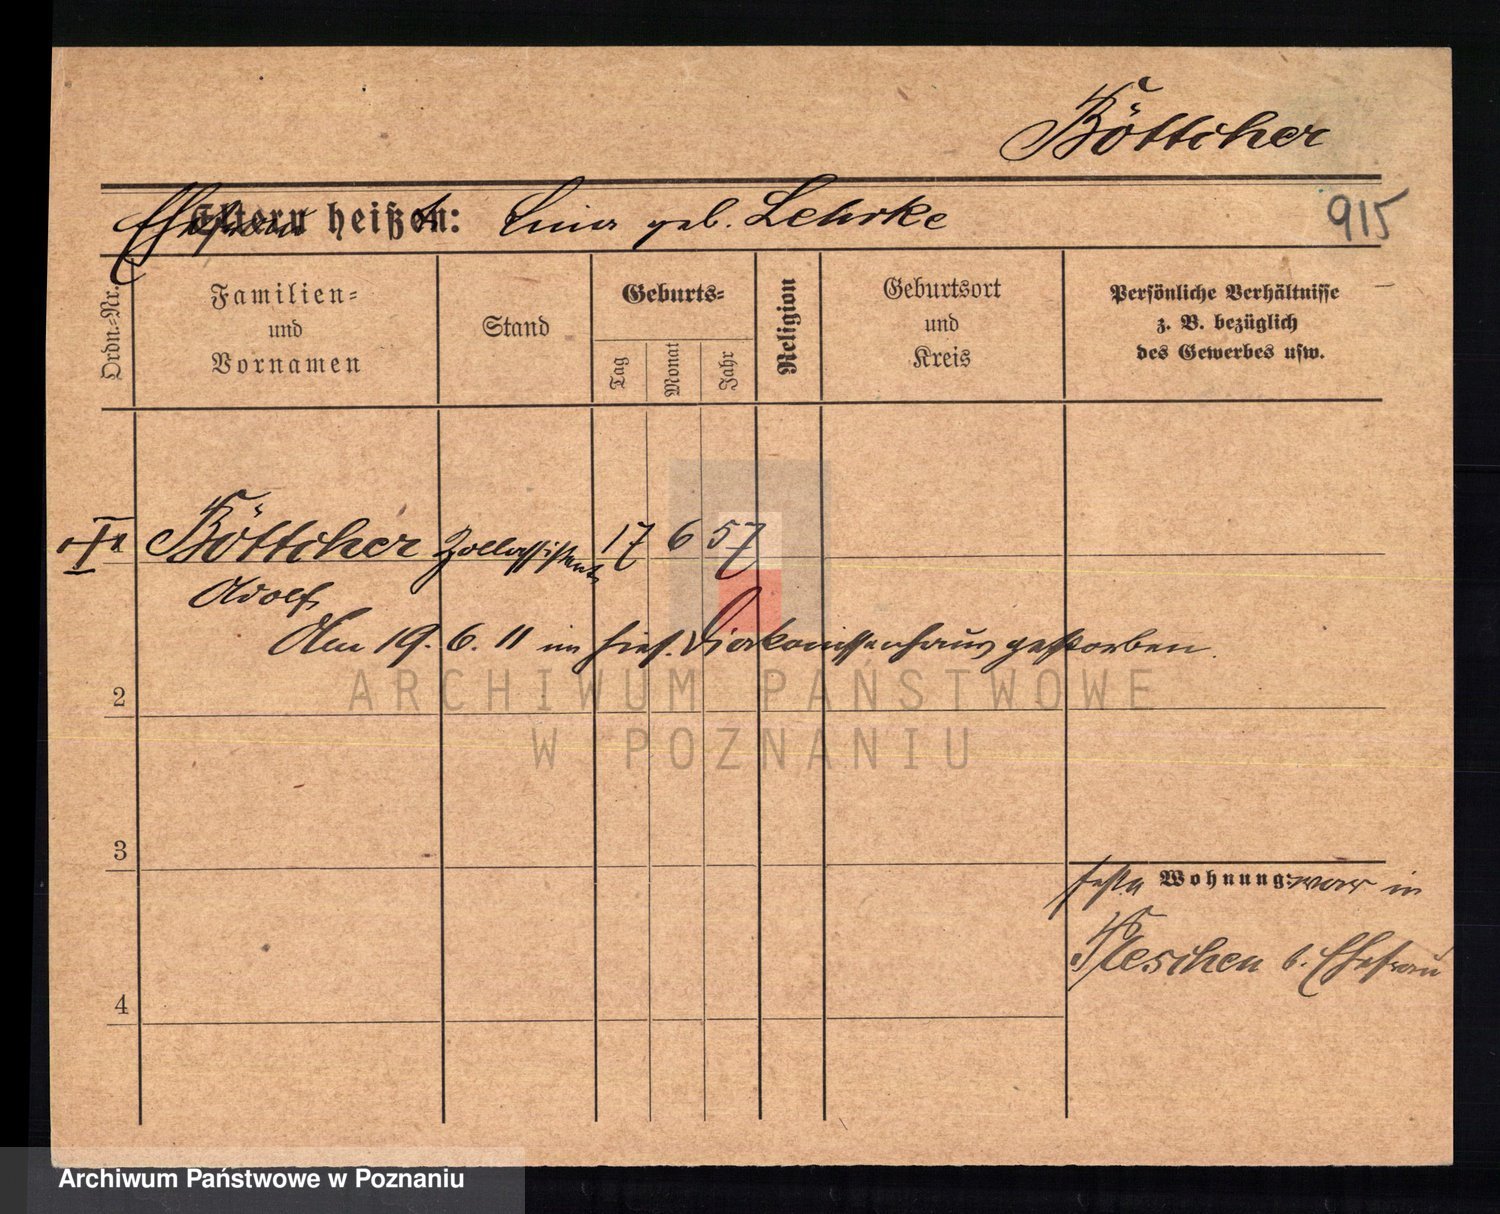 Böttcher
Eltern heißen: Ehefrau Lina geb. Lehrke
915
Ordn.-Nr.
Familien-
und
Vornamen
Stand
Geburts-
Tag
Monat
Jahr
Religion
Geburtsort
und
Kreis
Persönliche Verhältnisse
z. B. bezüglich
des Gewerbes usw.
Böttcher Zollassistent 17 6 57
Adolf
Am 19. 6. 11 im hies. Diakonissenhaus gestorben.
ARCHIWUM PAŃSTWOWE
W POZNANIU
2
3
4
feste Wohnung: war in
Pleschen b. Ehefrau
Archiwum Państwowe w Poznaniu